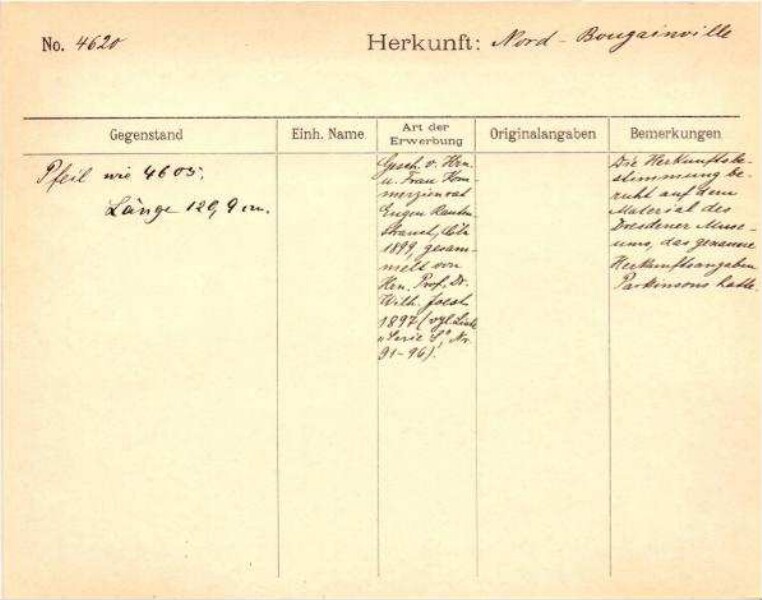 No. 4620
Herkunft: Nord - Bougainville
Gegenstand
Einh. Name
Art der Erwerbung
Originalangaben
Bemerkungen
Pfeil wie 4605;
Länge 129,9 cm.
Gesch. v. Hrn.
u. Frau Kom-
merzienrat
Eugen Rauten-
strauch, Cöln
1899, gesam-
melt von
Hrn. Prof. Dr.
Wilh. Joest
1897 (vgl. Liste
„Serie S", Nr.
91-96).
Die Herkunftsbe-
stimmung be-
ruht auf dem
Material des
Dresdener Muse-
ums, das genaue
Herkunftsangaben
Parkinsons hatte.